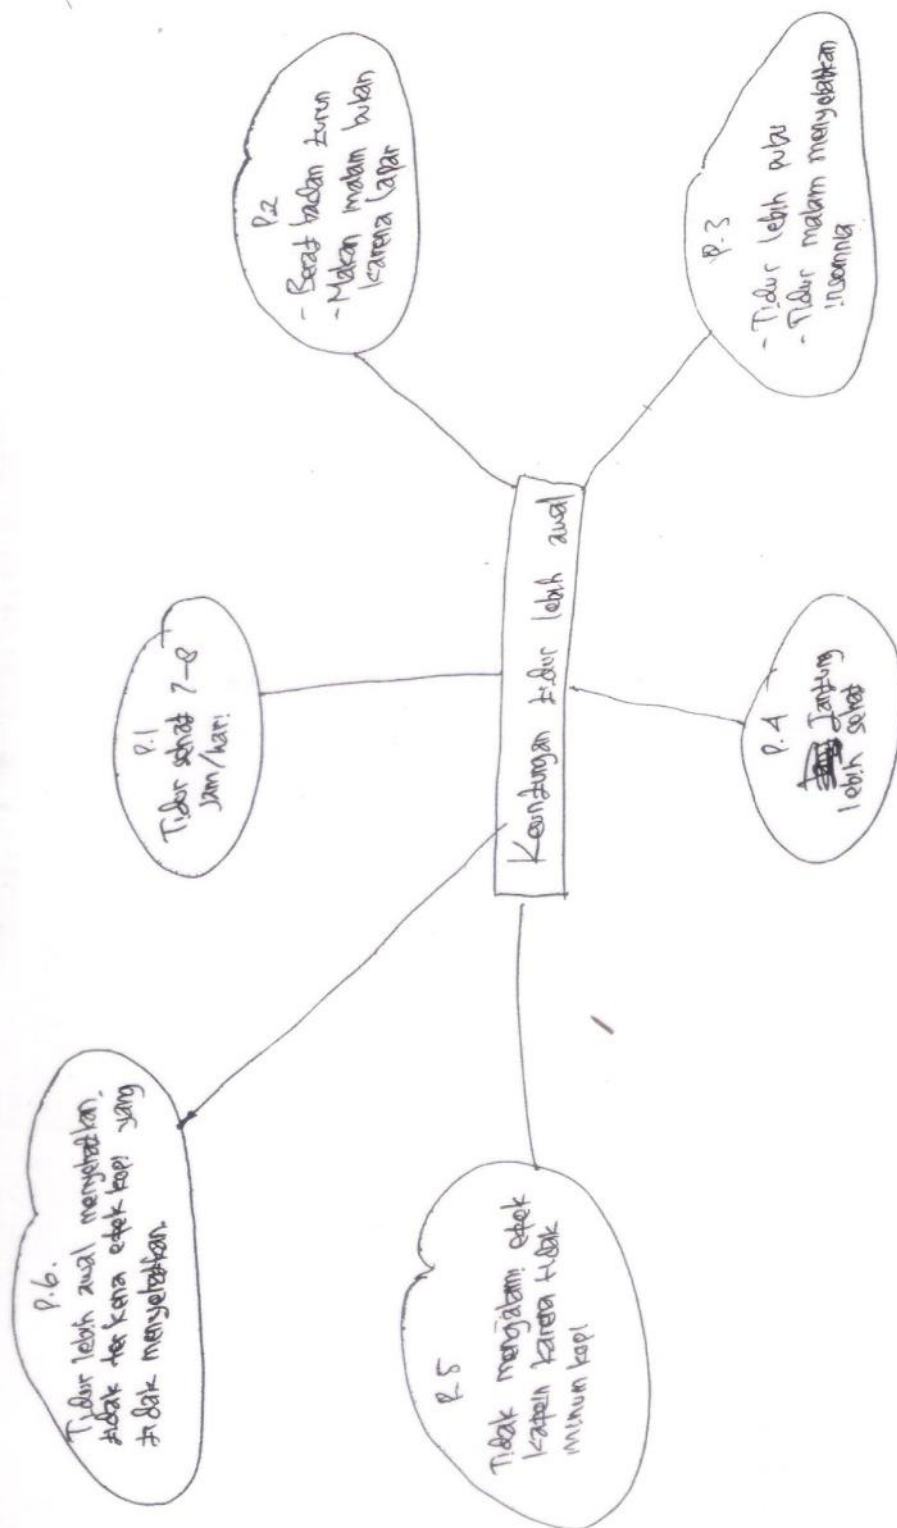 Keuntungan tidur lebih awal
P.1
Tidur sehat 7-8
jam/hari
P.2
- Berat badan turun
- Makan malam bukan
karena lapar
P.3
- Tidur lebih pulas
- Tidur malam menyebabkan
insomnia
P.4
Jantung
lebih sehat
P.5
Tidak mengalami efek
kafein karena tidak
minum kopi
P.6.
Tidur lebih awal menyehatkan.
tidak terkena efek kopi yang
tidak menyehatkan.